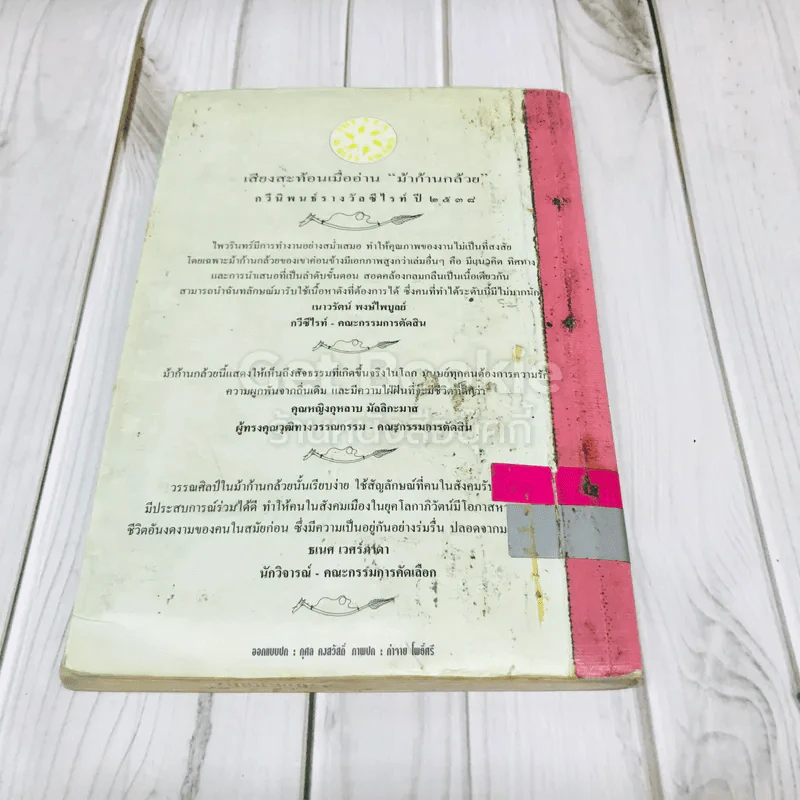 เสียงสะท้อนเมื่ออ่าน "ม้าก้านกล้วย"
กวีนิพนธ์รางวัลซีไรท์ ปี ๒๕๓๘
ไพวรินทร์มีการทำงานอย่างสม่ำเสมอ ทำให้คุณภาพของงานไม่เป็นที่สงสัย
โดยเฉพาะม้าก้านกล้วยของเขาค่อนข้างมีเอกภาพสูงกว่าเล่มอื่นๆ คือ มีแนวคิด ทิศทาง
และการนำเสนอที่เป็นลำดับขั้นตอน สอดคล้องกลมกลืนเป็นเนื้อเดียวกัน
สามารถนำฉันทลักษณ์มารับใช้เนื้อหาดังที่ต้องการได้ ซึ่งคนที่ทำได้ระดับนี้มีไม่มากนัก
เนาวรัตน์ พงษ์ไพบูลย์
กวีซีไรท์ - คณะกรรมการตัดสิน
ม้าก้านกล้วยนี้แสดงให้เห็นถึงสัจธรรมที่เกิดขึ้นจริงในโลก มนุษย์ทุกคนต้องการความรัก
ความผูกพันจากถิ่นเดิม และมีความใฝ่ฝันที่จะมีชีวิตที่ดีกว่า
คุณหญิงกุหลาบ มัลลิกะมาส
ผู้ทรงคุณวุฒิทางวรรณกรรม - คณะกรรมการตัดสิน
Get Bookie
ร้านหนังสือบุ๊คกี้
วรรณศิลป์ในม้าก้านกล้วยนั้นเรียบง่าย ใช้สัญลักษณ์ที่คนในสังคมรับ
มีประสบการณ์ร่วมได้ดี ทำให้คนในสังคมเมืองในยุคโลกาภิวัตน์มีโอกาสห
ชีวิตอันงดงามของคนในสมัยก่อน ซึ่งมีความเป็นอยู่กันอย่างร่มรื่น ปลอดจากม
ธเนศ เวศร์ภาดา
นักวิจารณ์ - คณะกรรมการคัดเลือก
ออกแบบปก : กุศล คงสวัสดิ์ ภาพปก : กำจาย โพธิ์ศรี